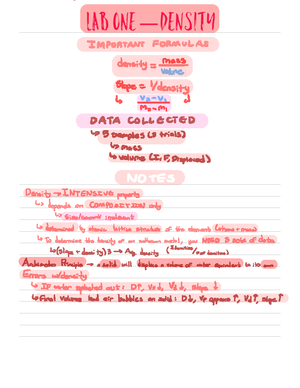 LAB ONE — DENSITY
IMPORTANT FORMULAS
density = mass
volume
Slope = 1/density
V₂ - V₁
M₂ - M₁
DATA COLLECTED
↳ 5 Samples (3 trials)
↳ mass
↳ volume (I, F, Displaced)
NOTES
Density → INTENSIVE property
↳ depends on COMPOSITION only
↳ Size/amount irrelevant
↳ determined by atomic lattice structure of the element (atoms + mass)
↳ To determine the density of an unknown metal, you NEED 3 sets of data
↳ (Slope + density) 3 → Avg. density
Archimedes Principle → a solid will displace a volume of water equivalent to its own
Errors w/density
↳ If water splashed out: D↑, V↓, slope ↓
↳ Final Volume had air bubbles on solid: D↓, VF approx ↑, Vd↑, slope↑